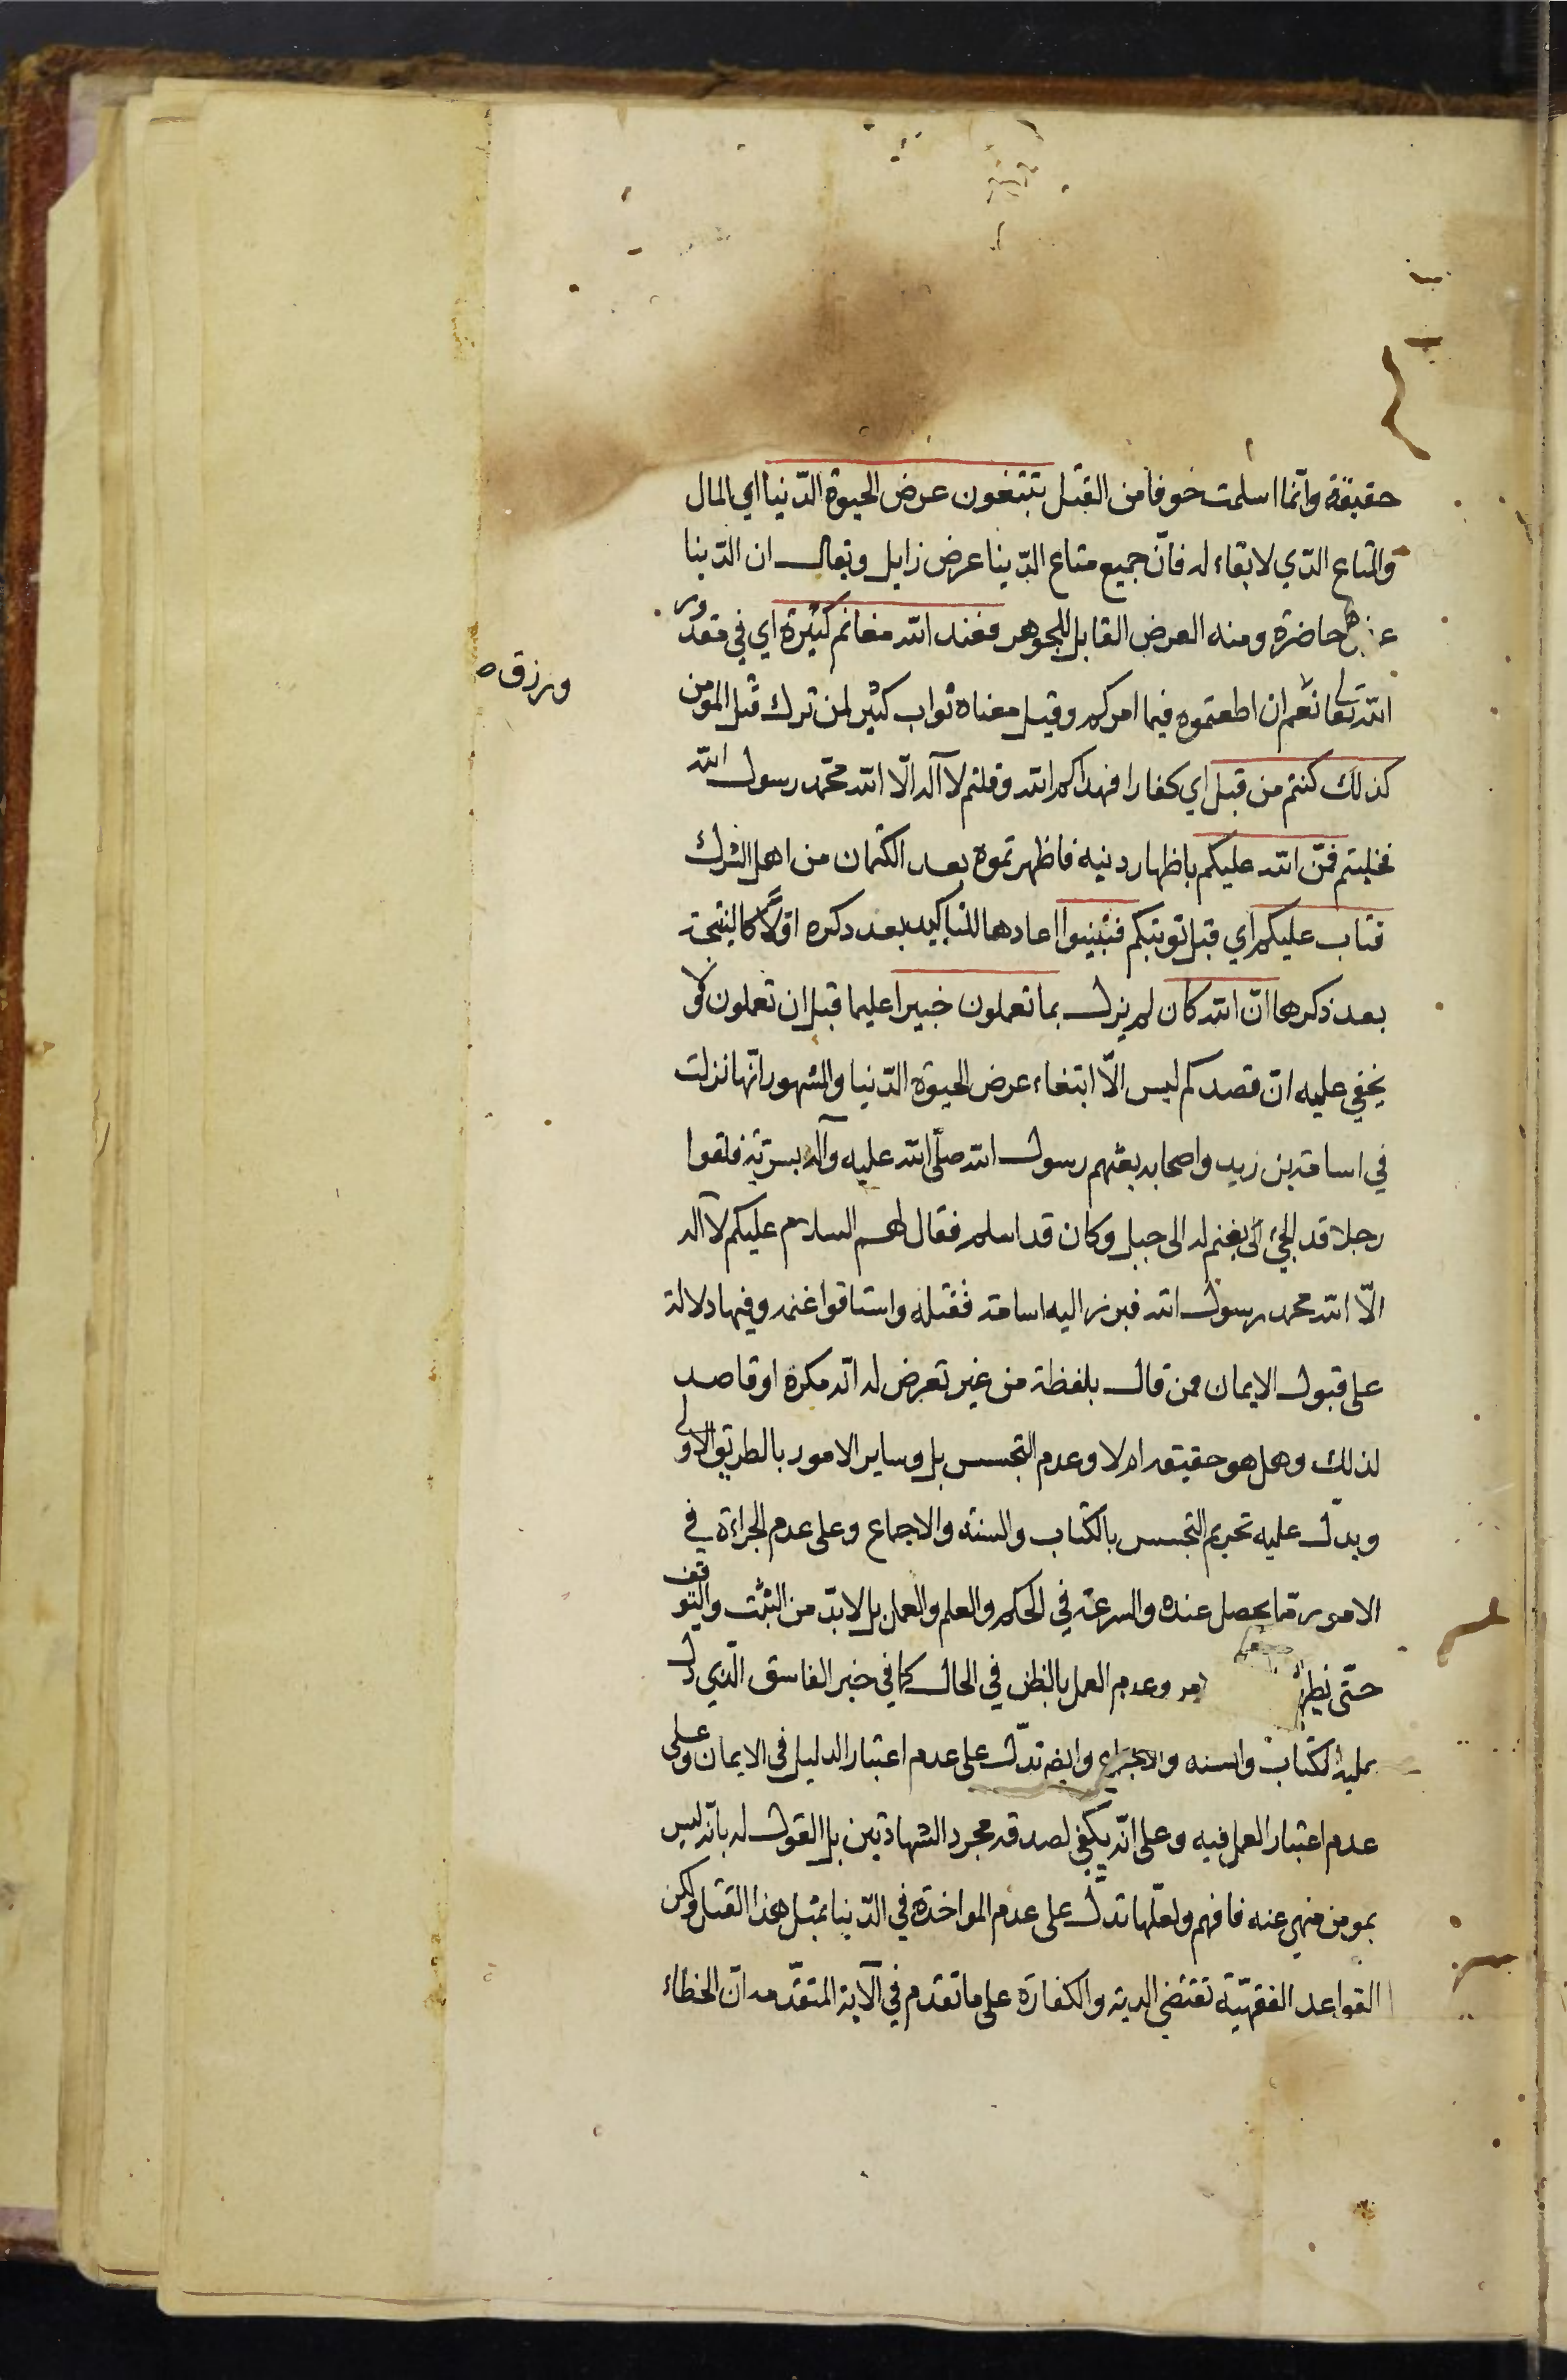 حقيقة وانما اسلمت خوفا من القتل تبتغون عرض الحيوة الدنيا اي المال
والمتاع الذي لا بقاء له فان جميع متاع الدنيا عرض زايل ويقال ان الدنيا
عرض حاضرة ومنه العرض القابل للجوهر فعند الله مغانم كثيرة اي في مقدور
الله تعالى نعم ان اطعتموه فيما امركم وقيل معناه ثواب كثير لمن ترك قتل المؤمن
ورزق
كذلك كنتم من قبل اي كفارا فهداكم الله وقلتم لا آله الّا الله محمّد رسول الله
فخليتم فمنّ الله عليكم باظهار دينه فاظهرتموه بعد الكتمان من اهل الشرك
فتاب عليكم اي قبل توبتكم فتبينوا اعادها للتاكيد بعد ذكره اوّلاً كالنتيجة
بعد ذكرها انّ الله كان لم يزل بما تعملون خبيرا عليما قبل ان تعملون فلا
يخفي عليه انّ قصدكم ليس الّا ابتغاء عرض الحيوة الدّنيا والمشهور انّها نزلت
في اسامة بن زيد واصحابه بعثهم رسول الله صلّى الله عليه وآله بسريّة فلقوا
رجلا قد الجئ الى بغنم له الى جبل وكان قد اسلم فقال لهم السلام عليكم لا آله
الّا الله محمد رسول الله فبرز اليه اسامة فقتله واستاقوا غنمه وفيها دلالة
على قبول الايمان ممن قال بلفظة من غير تعرض له انّه مكره او قاصد
لذلك وهل هو حقيقه ام لا وعدم التجسس بل وساير الامور بالطريق الاولى
ويدلّ عليه تحريم التجسس بالكتاب والسنة والاجماع وعلى عدم الجراءة في
الامور مما يحصل عنده والسرعة في الحكم والعلم والعمل بل لابدّ من التثبت والتوقف
حتّى يظهر وعدم العمل بالظن في الحال كما في خبر الفاسق الّذي دل
عليه الكتاب والسنه والاجماع وايضه تدلّ على عدم اعتبار الدليل في الايمان وعلى
عدم اعتبار العمل فيه وعلى انّه يكفي لصدقه مجرد الشهادتين بل القول له بانّه ليس
بمومن منهي عنه فافهم ولعلّها تدلّ على عدم المواخذة في الدّنيا بمثل هذا القتل ولكن
القواعد الفقهيّة تقتضي الدية والكفارة على ما تقدم في الآية المتقدّمه انّ الخطاء